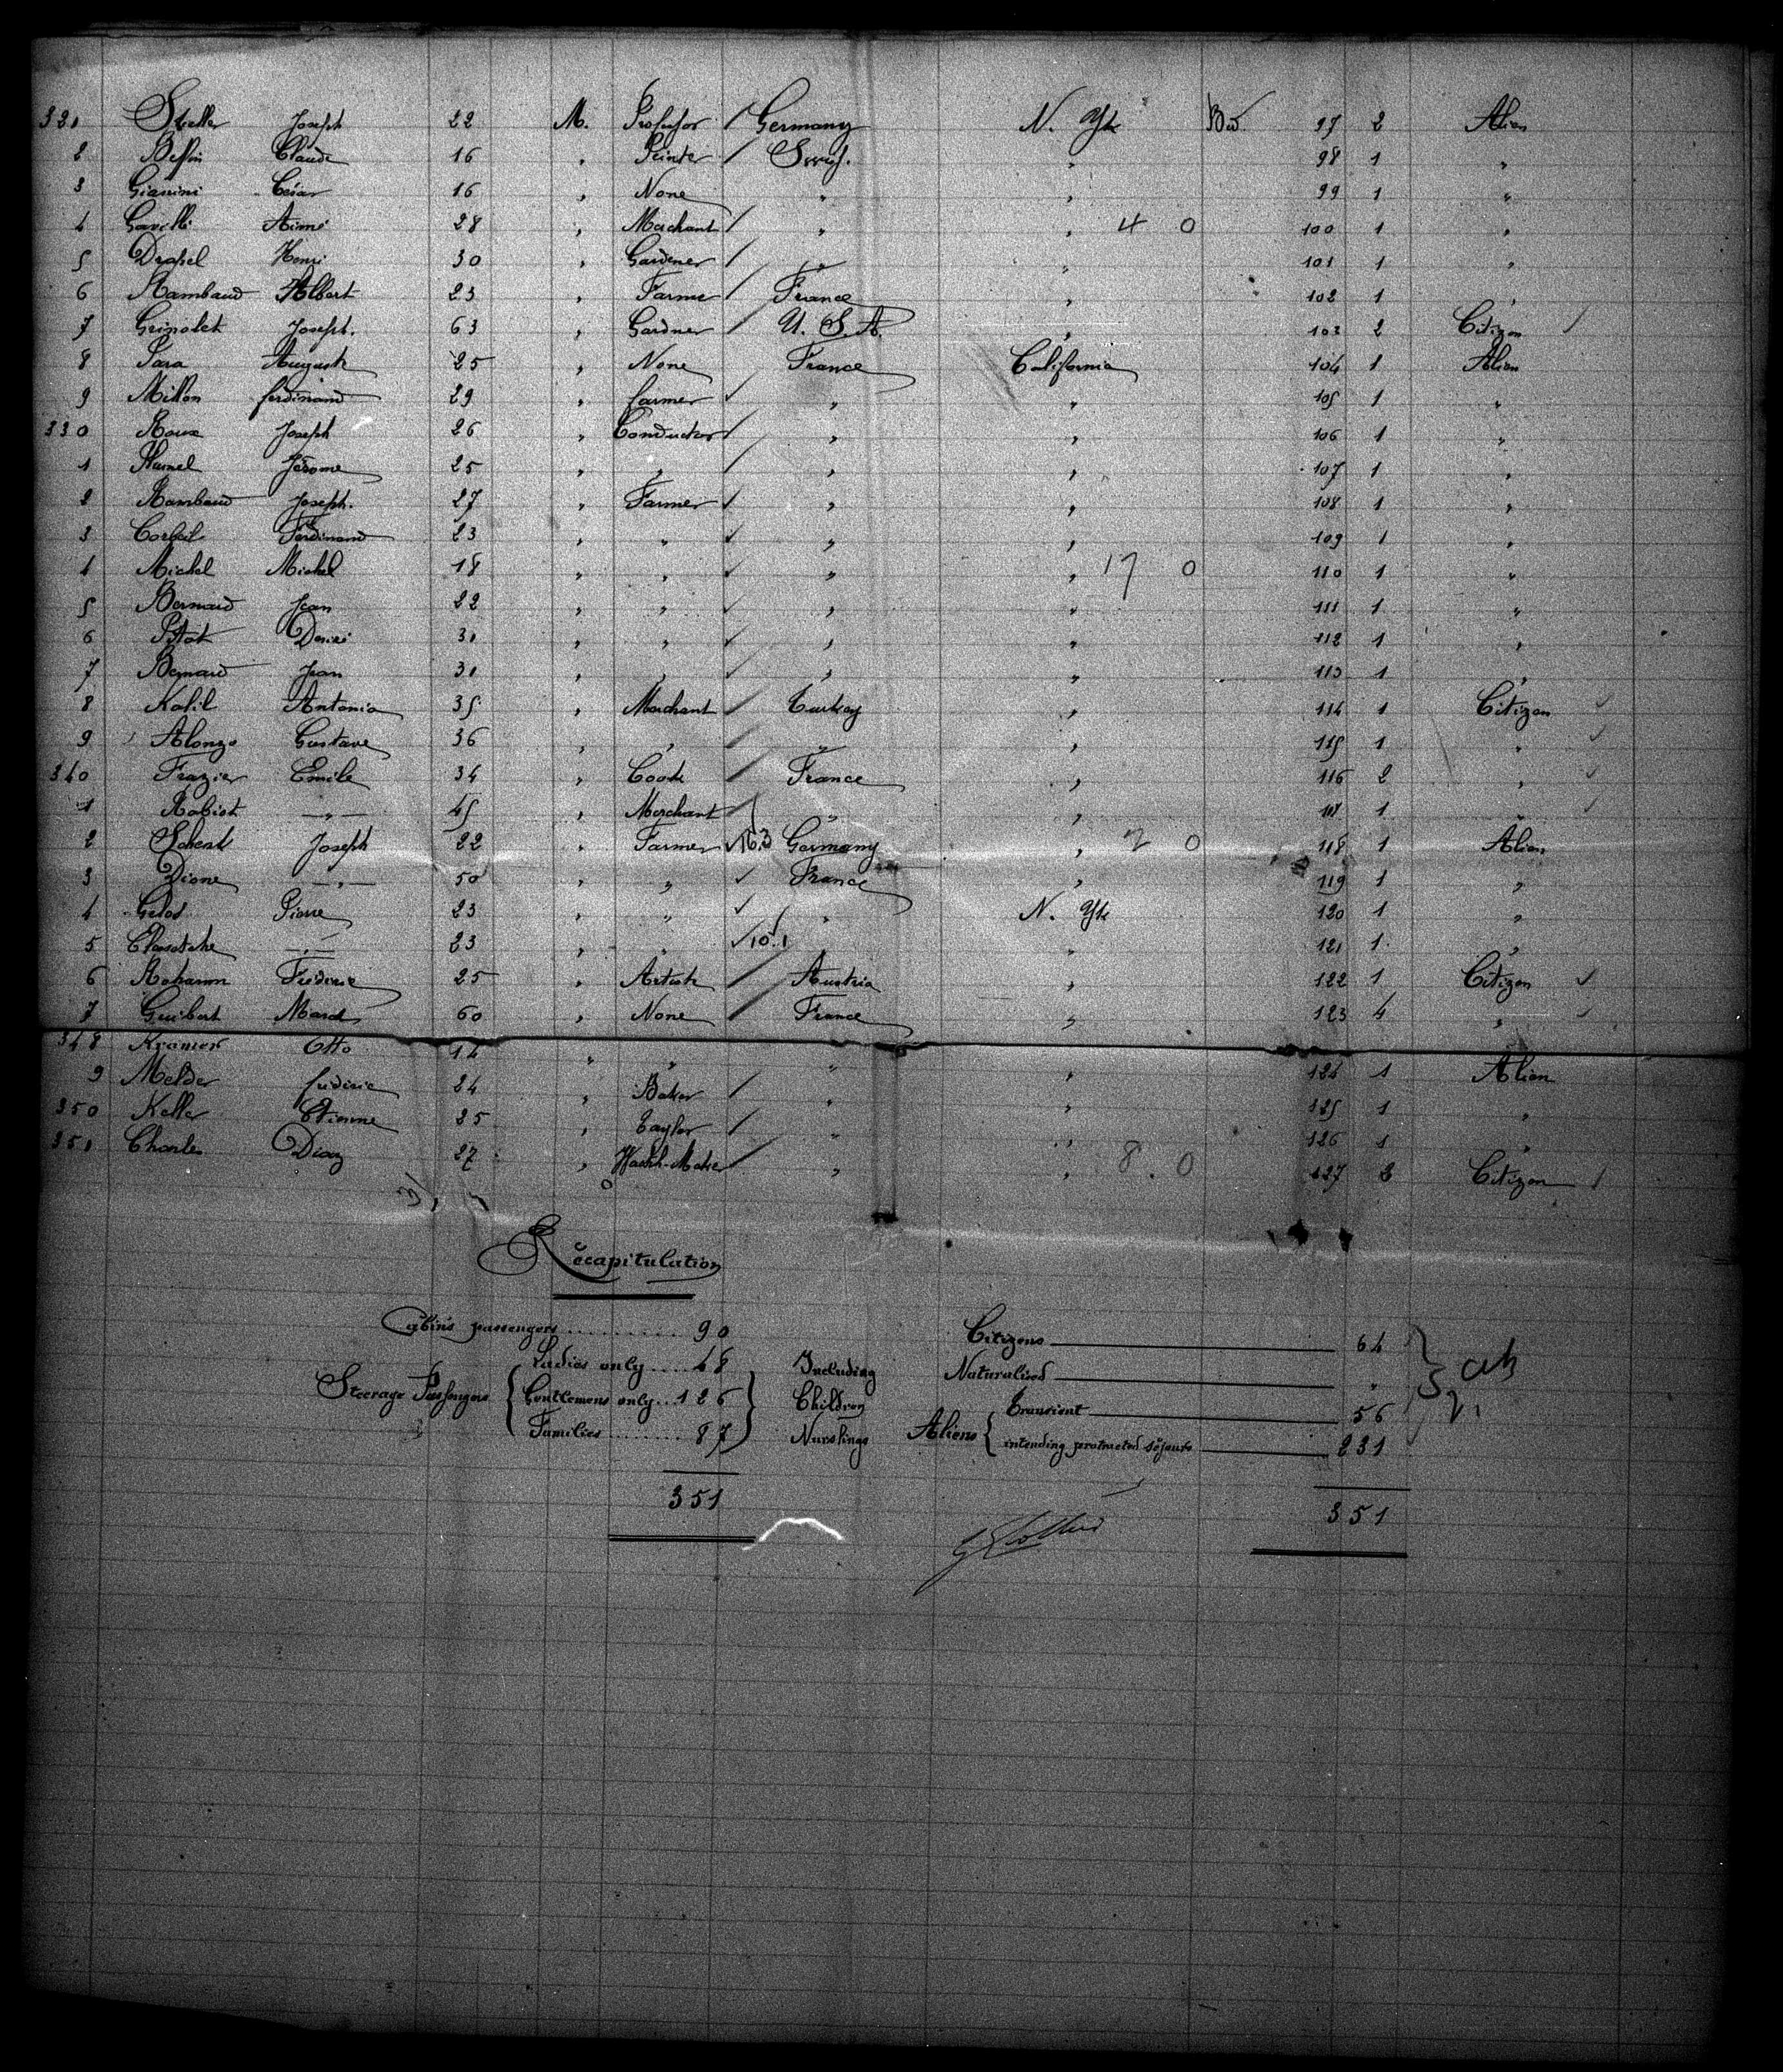 321 Steller Joseph 22 M. Professor / Germany N. Yk Bd 97 2 Alien
2 Bessin Claude 16 " Peinter / 98 1 "
3 Gianini César 16 " None " " 99 1 "
4 Aimé 28 " Merchant / " " 4 0 100 1 "
5 Drapel Henri 30 " Gardener / " " 101 1 "
6 Rambaud Albert 23 " Farme / France " 102 1 "
7 Grinolet Joseph. 63 " Gardner / U. S. A. " 103 2 Citizen /
8 Sara Auguste 25 " None France California 104 1 Alien
9 Millon ferdinand 29 " farmer ✓ " " 105 1 "
330 Roux Joseph 26 " Conductor / " " 106 1 "
1 Jérome 25 " " / " " 107 1 "
2 Rambaud Joseph. 27 " Farmer ✓ " " 108 1 "
3 Corbeil Ferdinand 23 " " ✓ " " 109 1 "
4 Michel Michel 18 " " ✓ " " 17 0 110 1 "
5 Bernard Jean 22 " " ✓ " " 111 1 "
6 31 " " ✓ " " 112 1 "
7 Bernard Jean 31 " " ✓ " " 113 1 "
8 Kalil Antonia 35 " Merchant / Turkey " 114 1 Citizen ✓
9 Alonzo Gustave 36 " " / " " 115 1 " ✓
340 Frazier Emile 34 " Cook / France " 116 2 " ✓
1 Rabiot — " — 45 " Merchant / " " 1 " ✓
2 Schenk Joseph 22 " Farmer ✓ 16.3 Germany " 2 0 118 1 Alien
3 Dione — " — 50 " " ✓ France " 119 1 "
4 Gelos Pierre 23 " " ✓ " N. Yk 120 1 "
5 — " — 23 " " ✓ 10.1 " 121 1 "
6 Frederic 25 " Artist / Austria " 122 1 Citizen ✓
7 Guibert March 60 " None / France " 123 4 " ✓
348 Kramer Otto 14 " " " " 124 1 Alien
9 Melder frederic 24 " Baker / " " 125 1 "
350 Keller Etienne 25 " Taylor / " " 126 1 "
351 Charles Diaz 27 " Watch-Maker / " " 8.0 127 2 Citizen /
Recapitulation
Cabins passengers .......... 90
Steerage Passengers { Ladies only .... 48
Gentlemens only ... 126
Families ........ 87 }
Including
Children
Nurslings
351
Citizens 64
Naturalised "
Aliens { Transient 56
intending protracted séjours 231
351